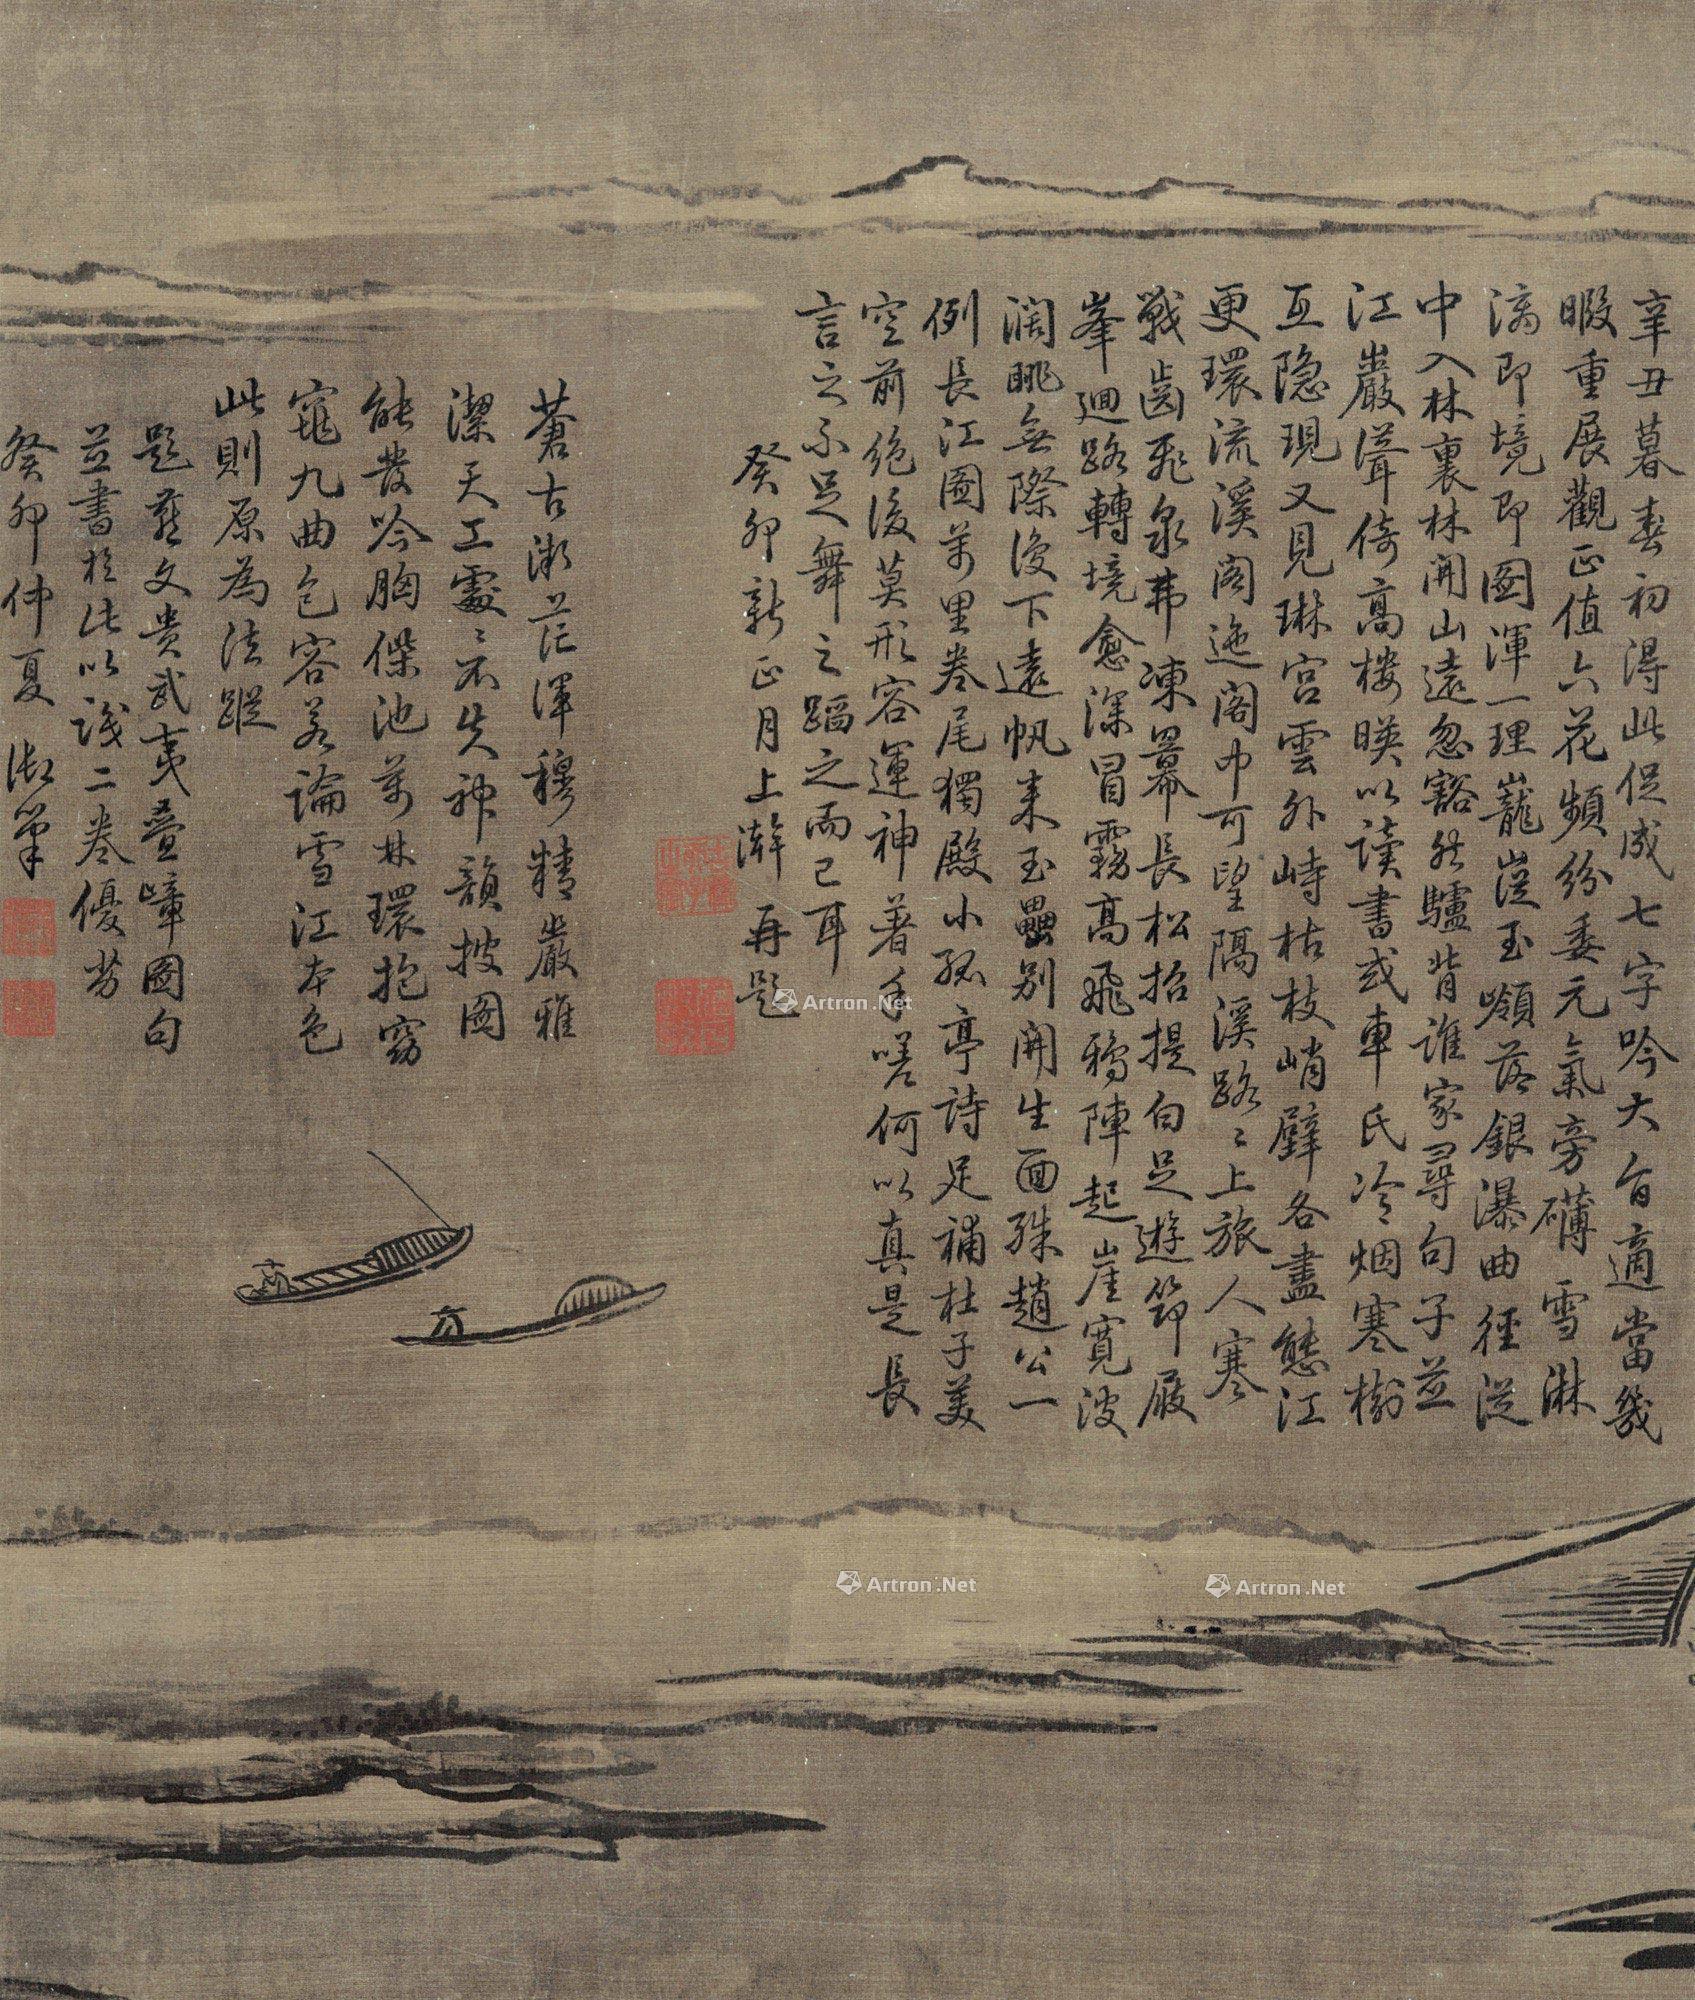 辛丑暮春初得此促成七字吟大有適當幾
暇重展觀正值六花頻紛委元氣旁礴雪淋
漓即境即圖渾一理巃嵸玉嶺落銀瀑曲徑從
中入林裏林開山遠忽豁然驢背誰家尋句子並
江巖聳倚高樓暎以讀書或車氏冷烟寒樹
互隐現又見琳宮雲外峙枯枝峭壁各盡態江
更環流溪閣迤閣中可望隔溪路路上旅人寒
戰齒飛泉弗凍冪長松招提白足遊笻屐
峯迴路轉境愈深冒霧高飛鴉陣起崖寬波
濶眺無際後下遠帆來玉壘别開生面殊趙公一
例長江圖萬里卷尾獨殿小孤亭詩足補杜子美
空前絶後莫形容運神著手嗟何以真是長
言之不足舞之蹈之而已耳
癸卯新正月上澣再題
蒼古淋茫渾穆精嚴雅
潔天工處處不失神韻披圖
能發吟胸傑池萬林環抱窈
窕九曲包容若論雪江本色
此則原為法蹤
題燕文貴武夷疊嶂圖句
並書於此以識二卷優劣
癸卯仲夏御筆
Artron.Net
Artron.Net
Artron.Net